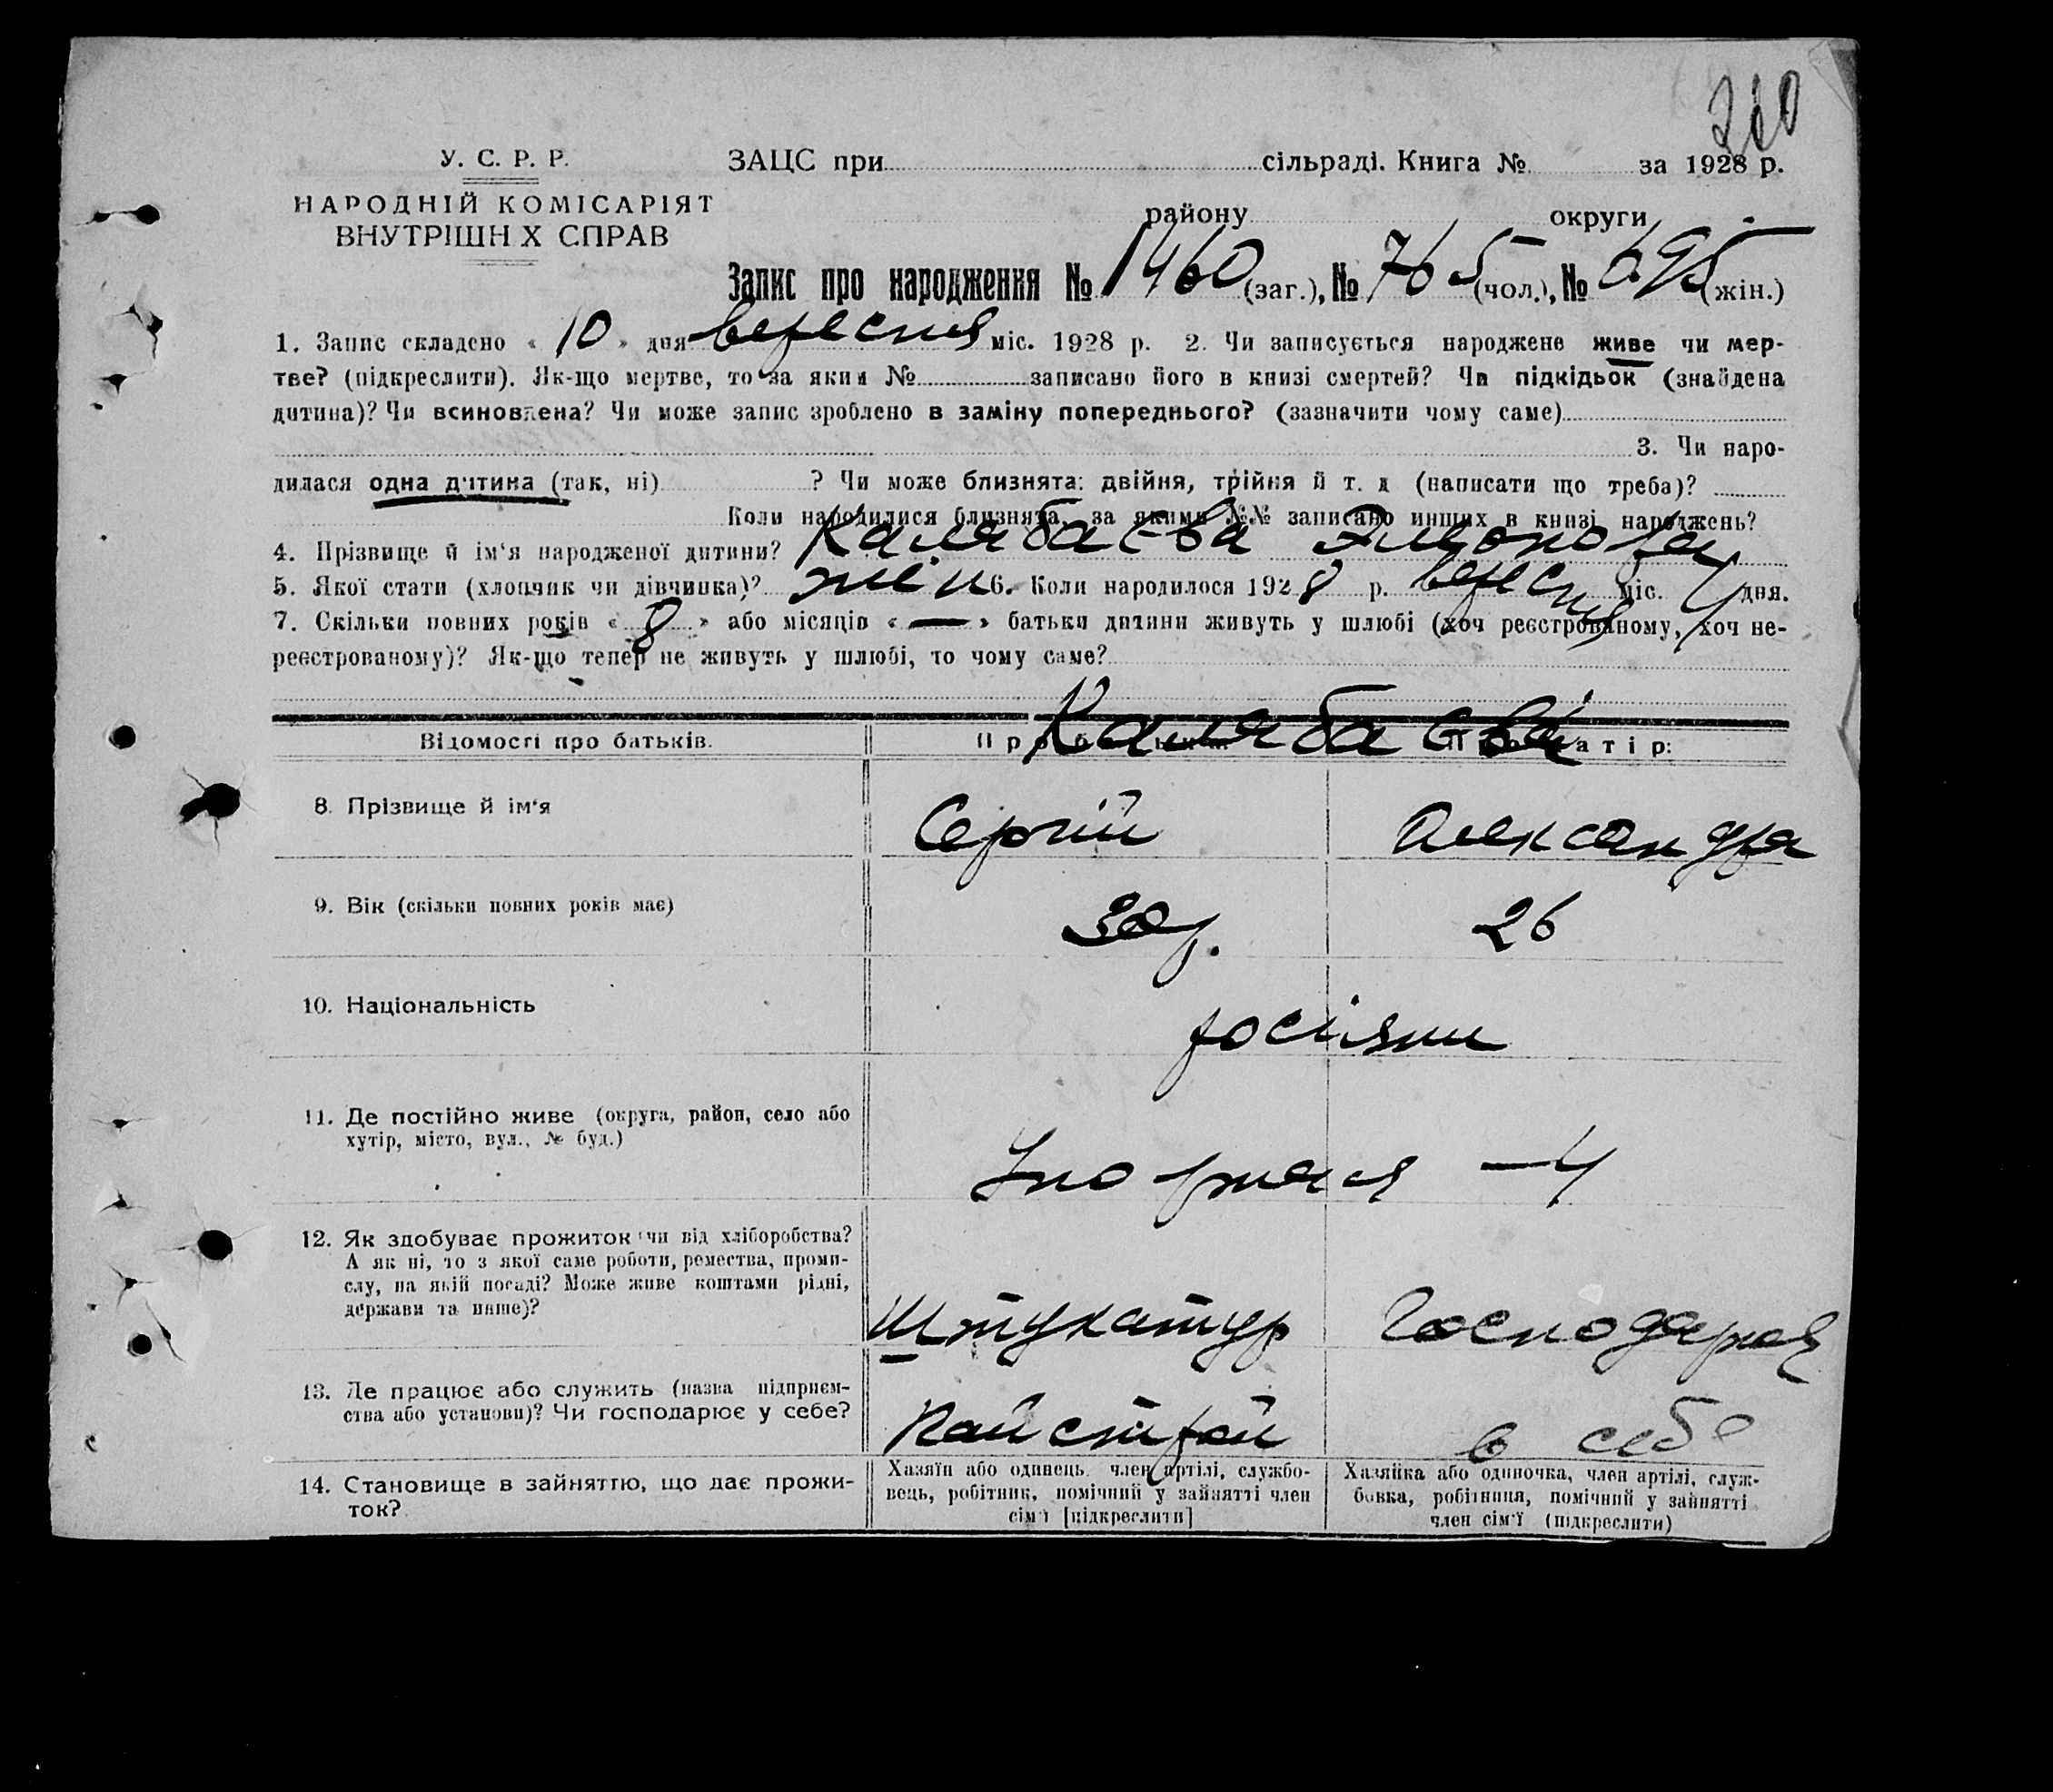 210
У. С. Р. Р.
НАРОДНІЙ КОМІСАРІЯТ
ВНУТРІШН Х СПРАВ
ЗАЦС при сільраді. Книга № за 1928 р.
району округи
Запис про народження № 1460 (заг.), № 765 (чол.), № 695 (жін.)
1. Запис складено « 10 » дня вересня міс. 1928 р. 2. Чи записується народжене живе чи мер-
тве? (підкреслити). Як-що мертве, то за яким № записано його в книзі смертей? Чи підкідьок (знайдена
дитина)? Чи всиновлена? Чи може запис зроблено в заміну попереднього? (зазначити чому саме)
3. Чи наро-
дилася одна дитина (так, ні) ? Чи може близнята: двійня, трійня й т. д (написати що треба)?
Коли народилися близнята, за якими №№ записано инших в книзі народжень?
4. Прізвище й ім'я народженої дитини? Калябаєва
5. Якої стати (хлопчик чи дівчинка)? жін 6. Коли народилося 1928 р. вересня міс. 4 дня.
7. Скільки повних років « 8 » або місяців « — » батьки дитини живуть у шлюбі (хоч реєстрованому, хоч не-
реєстрованому)? Як-що тепер не живуть у шлюбі, то чому саме?
Відомості про батьків. Калябаєви
8. Прізвище й ім'я Сергій Александра
9. Вік (скільки повних років має) 30 р. 26
10. Національність росіяни
11. Де постійно живе (округа, район, село або
хутір, місто, вул., № буд.)
— 4
12. Як здобуває прожиток чи від хліборобства?
А як ні, то з якої саме роботи, ремества, проми-
слу, на якій посаді? Може живе коштами рідні,
держави та инше)?
Штукатур Господарка
13. Де працює або служить (назва підприєм-
ства або установи)? Чи господарює у себе?
Пайстрой в себе
14. Становище в зайняттю, що дає прожи-
ток?
Хазяїн або одинець член артілі, службо-
вець, робітник, помічний у зайнятті член
сім'ї [підкреслити]
Хазяйка або одиночка, член артілі, служ-
бовка, робітниця, помічний у зайнятті
член сім'ї (підкреслити)